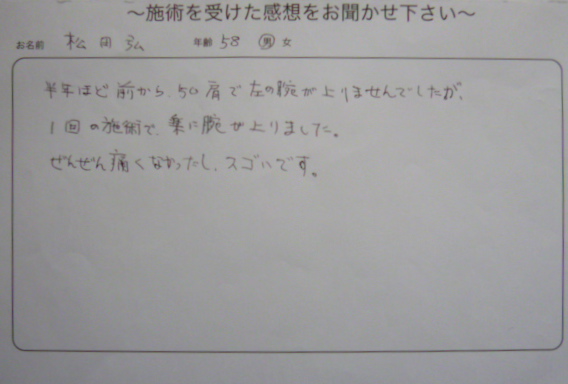 ～施術を受けた感想をお聞かせ下さい～
お名前 松田 弘 年齢 58 男 女
半年ほど前から、50肩で左の腕が上りませんでしたが、
1回の施術で、楽に腕が上りました。
ぜんぜん痛くなかったし、スゴいです。